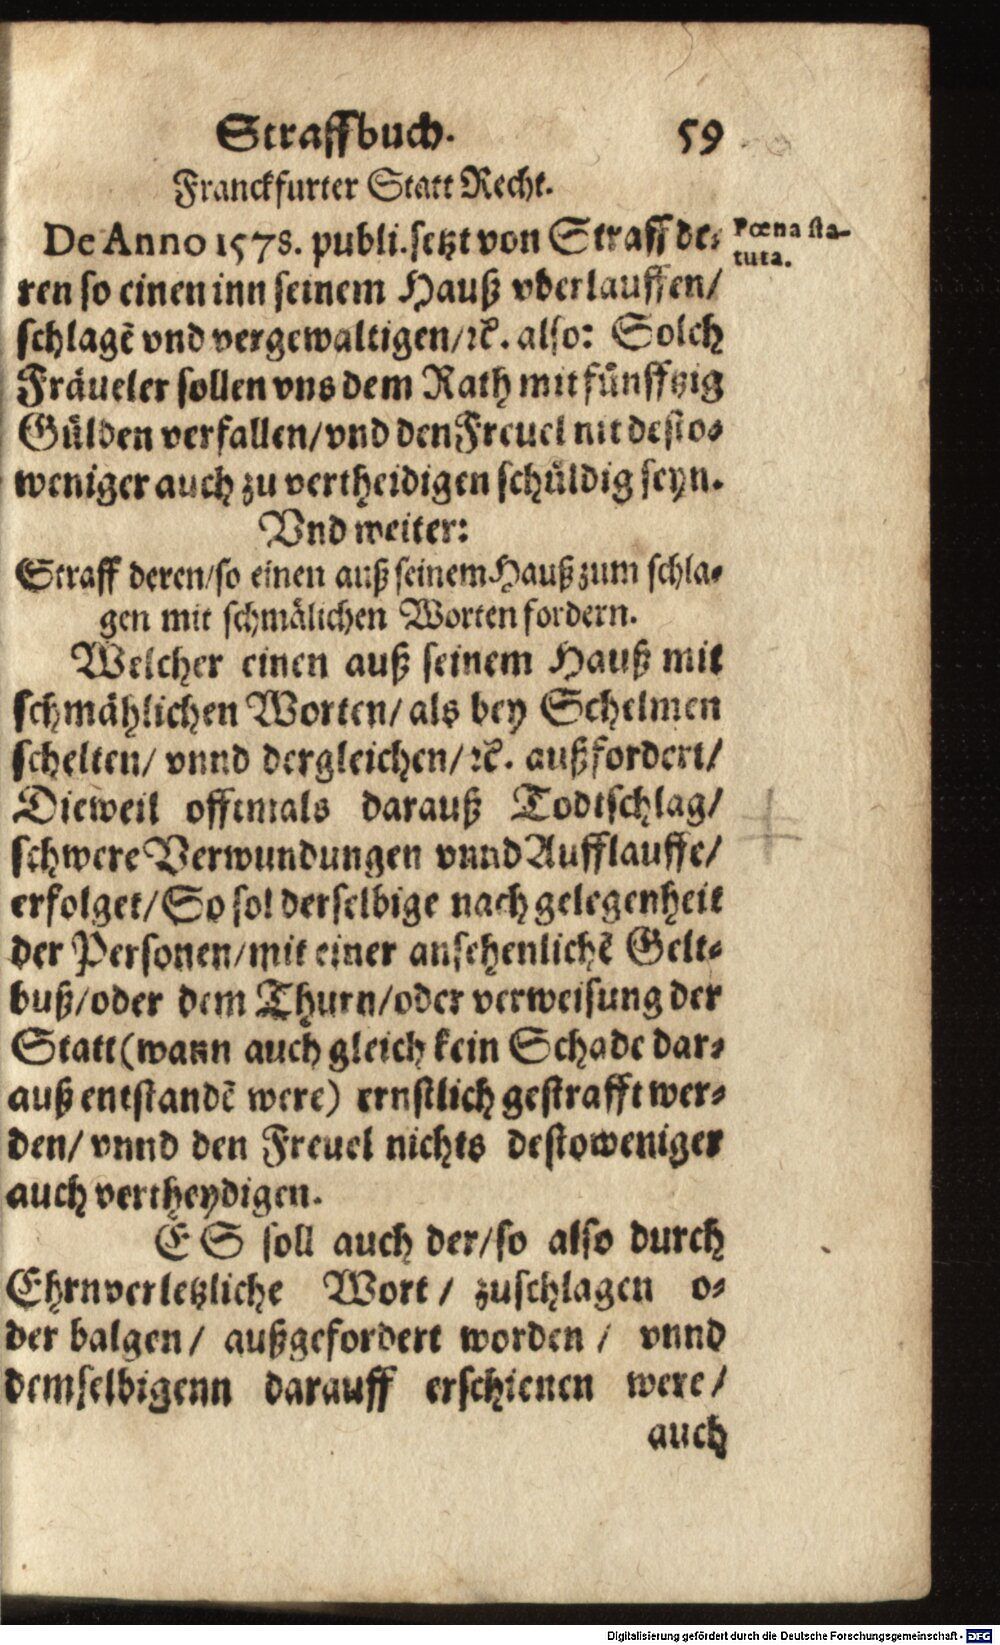 Straffbuch. 59
Franckfurter Statt Recht.
De Anno 1578. publi. setzt von Straff de-
Pœna sta-
tuta.
ren so einen inn seinem Hauß vberlauffen/
schlagẽ vnd vergewaltigen/ꝛc. also: Solch
Fräueler sollen vns dem Rath mit fünfftzig
Gülden verfallen/vnd den Freuel nit desto-
weniger auch zu vertheidigen schüldig seyn.
Vnd weiter:
Straff deren/so einen auß seinem Hauß zum schla-
gen mit schmälichen Worten fordern.
Welcher einen auß seinem Hauß mit
schmählichen Worten/ als bey Schelmen
schelten/ vnnd dergleichen/ꝛc. außfordert/
Dieweil offtmals darauß Todtschlag/
schwere Verwundungen vnnd Aufflauffe/
erfolget/So sol derselbige nach gelegenheit
der Personen/mit einer ansehenlichẽ Gelt-
buß/oder dem Thurn/oder verweisung der
Statt(wann auch gleich kein Schade dar-
auß entstandẽ were) ernstlich gestrafft wer-
den/ vnnd den Freuel nichts destoweniger
auch vertheydigen.
ES soll auch der/so also durch
Ehrnverletzliche Wort/ zuschlagen o-
der balgen/ außgefordert worden/ vnnd
demselbigenn darauff erschienen were/
auch
Digitalisierung gefördert durch die Deutsche Forschungsgemeinschaft - DFG